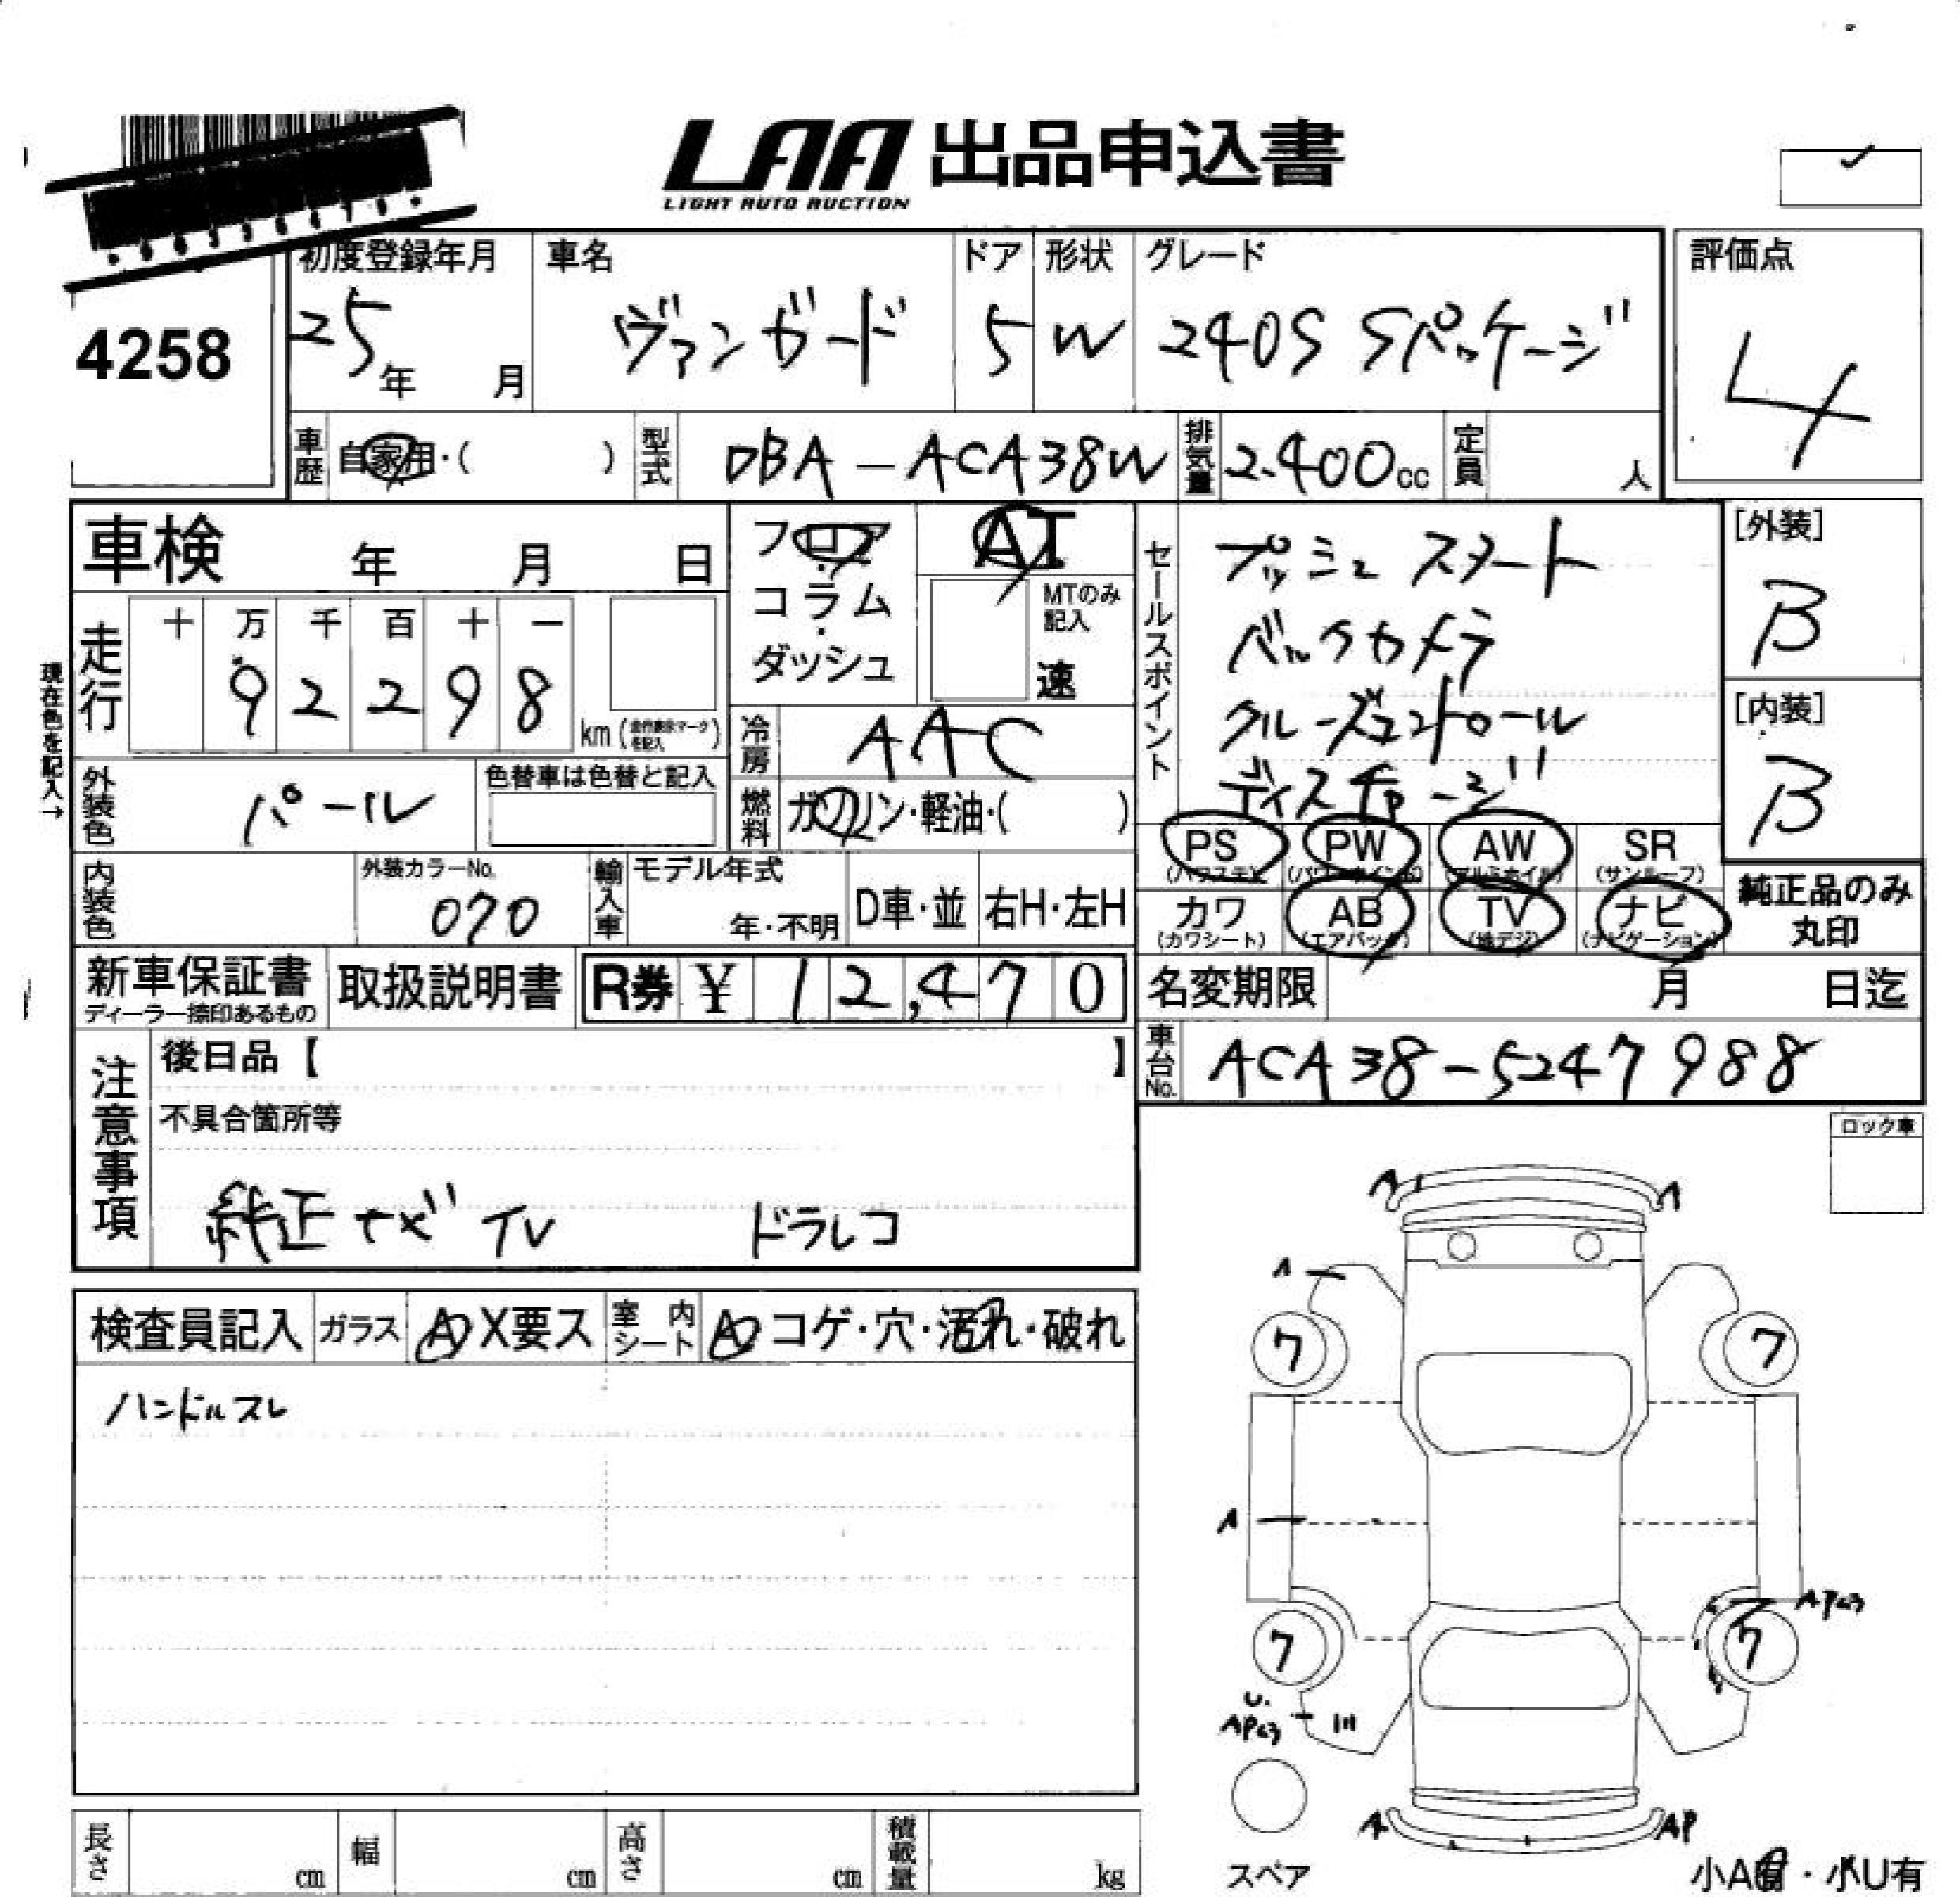 LAA 出品申込書
LIGHT AUTO AUCTION
4258
初度登録年月 車名 ドア 形状 グレード 評価点
25年 月 ヴァンガード 5 W 240S Sパッケージ 4
車歴 自家用・( ) 型式 DBA-ACA38W 排気量 2.400cc 定員 人
車検 年 月 日
フロア・コラム・ダッシュ
AT
MTのみ記入
速
セールスポイント
プッシュスタート
バックカメラ
クルーズコントロール
ディスチャージ
[外装]
B
[内装]
B
現在色を記入→
走行 十 万 千 百 十 一
9 2 2 9 8 km (走行表示マークを記入)
冷房 AAC
外装色 パール 色替車は色替と記入
燃料 ガソリン・軽油・( )
PS (パワステ) PW (パワーウインドウ) AW (アルミホイル) SR (サンルーフ)
カワ (カワシート) AB (エアバック) TV (地デジ) ナビ (ナビゲーション)
純正品のみ丸印
内装色 外装カラーNo. 070 輸入車 モデル年式 年・不明 D車・並 右H・左H
新車保証書 ディーラー捺印あるもの 取扱説明書 R券 ¥ 12,470 名変期限 月 日迄
車台No. ACA38-5247988
注意事項 後日品【 】
不具合箇所等
純正ナビ TV ドラレコ
ロック車
検査員記入 ガラス A X要ス 室内シート A コゲ・穴・汚れ・破れ
ハンドルスレ
A A
A
7 7
A
AP
7 7
U.
AP
A AP
スペア
小A有・小U有
長さ cm 幅 cm 高さ cm 積載量 kg